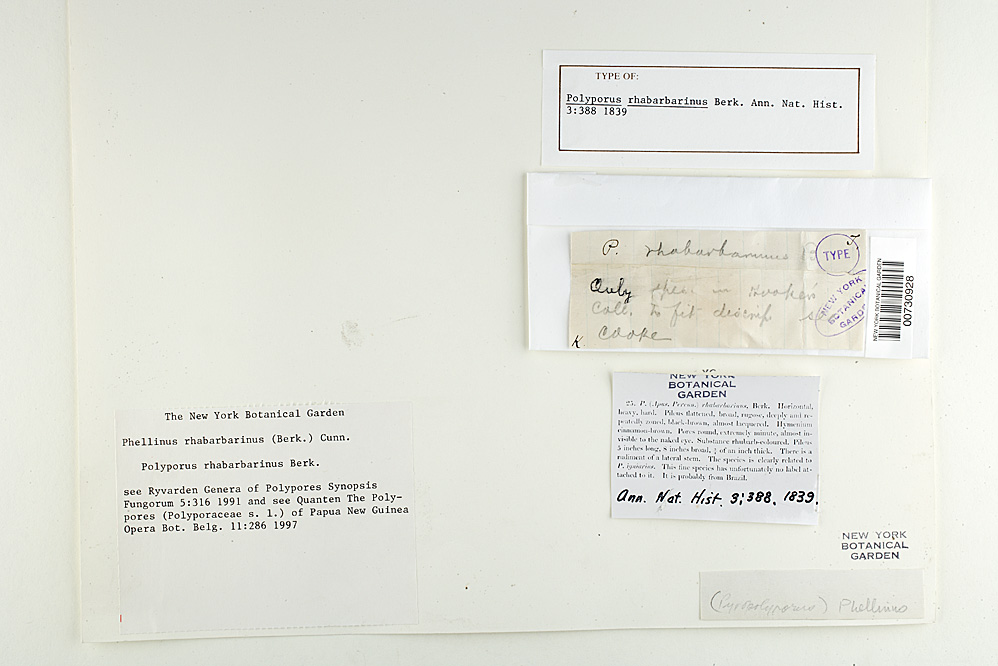 TYPE OF:
Polyporus rhabarbarinus Berk. Ann. Nat. Hist.
3:388 1839
P. rhabarbarinus
TYPE
Only spec in Hooker's
Coll. to fit descrip
Cooke
K.
NEW YORK
BOTANICAL
GARDEN
NEW YORK BOTANICAL GARDEN
00730928
NEW YORK
BOTANICAL
GARDEN
25. P. (Apus, Perenn.) rhabarbarinus, Berk. Horizontal,
heavy, hard. Pileus flattened, broad, rugose, deeply and re-
peatedly zoned, black-brown, almost lacquered. Hymenium
cinnamon-brown. Pores round, extremely minute, almost in-
visible to the naked eye. Substance rhubarb-coloured. Pileus
5 inches long, 8 inches broad, of an inch thick. There is a
rudiment of a lateral stem. The species is clearly related to
P. igniarius. This fine species has unfortunately no label at-
tached to it. It is probably from Brazil.
Ann. Nat. Hist. 3:388. 1839.
The New York Botanical Garden
Phellinus rhabarbarinus (Berk.) Cunn.
Polyporus rhabarbarinus Berk.
see Ryvarden Genera of Polypores Synopsis
Fungorum 5:316 1991 and see Quanten The Poly-
pores (Polyporaceae s. l.) of Papua New Guinea
Opera Bot. Belg. 11:286 1997
NEW YORK
BOTANICAL
GARDEN
(Pyropolyporus) Phellinus